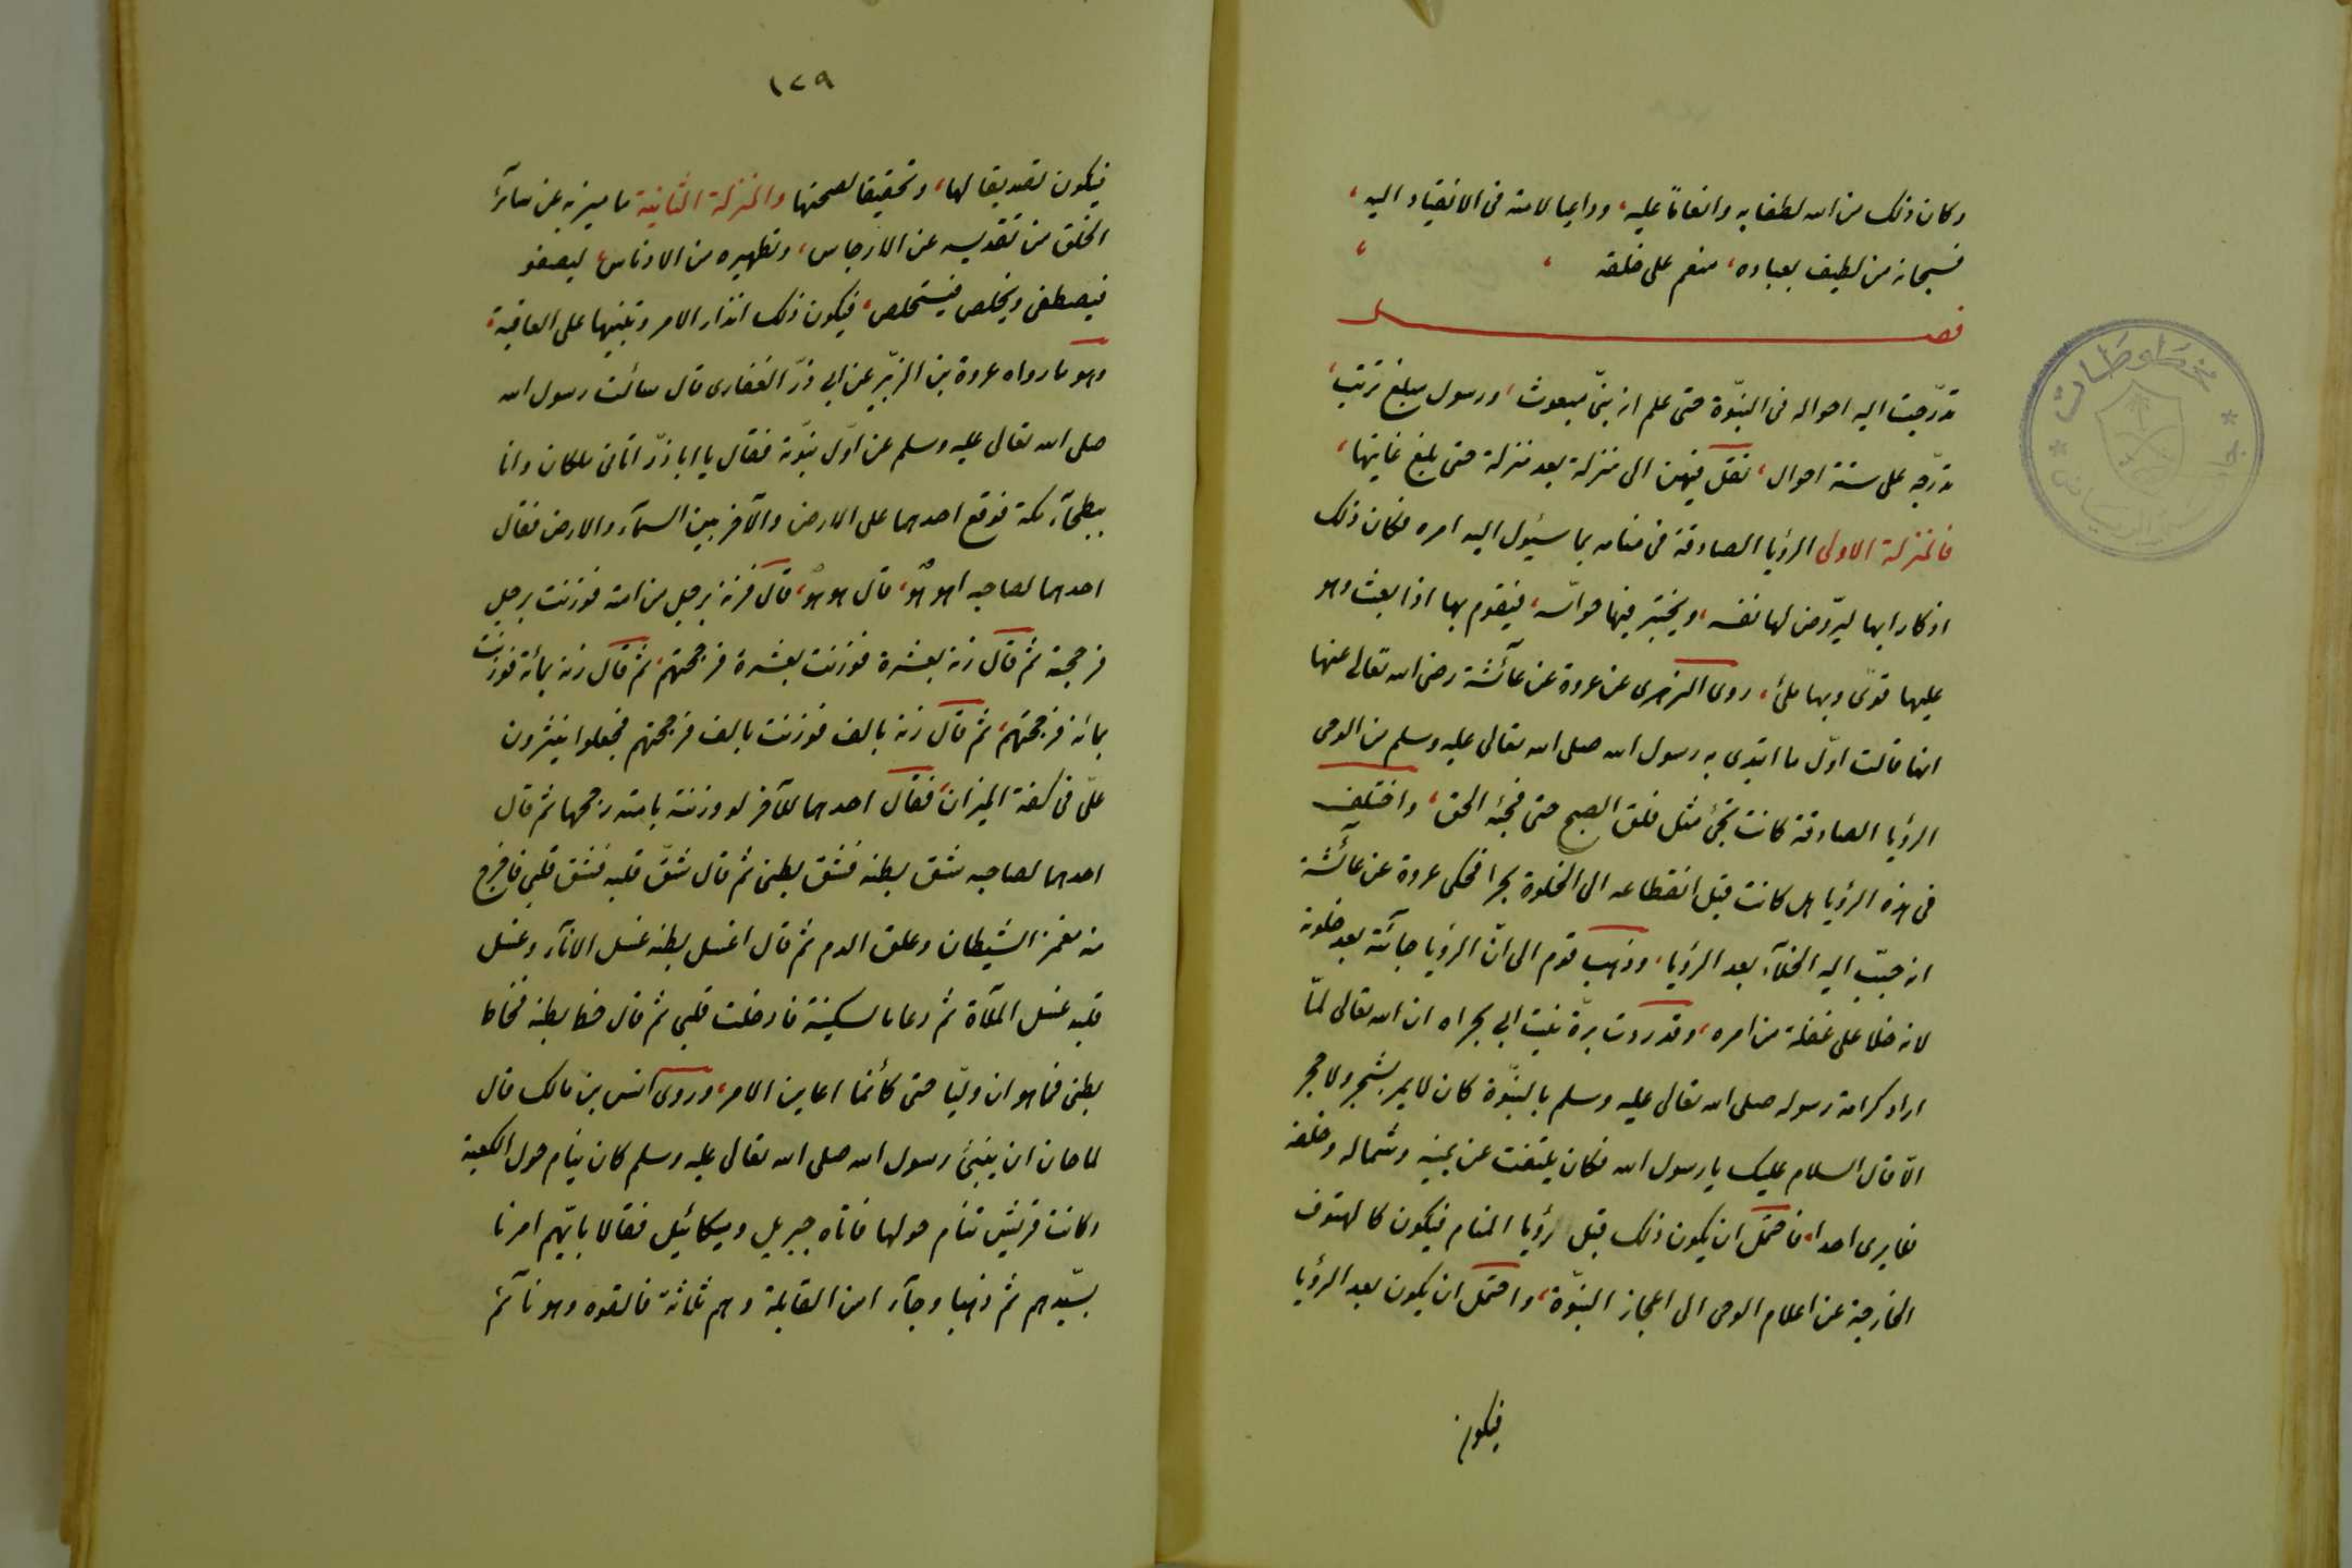 وكان ذلك من الله لطفا به وانعاماً عليه، وداعيا لامته فى الانقياد اليه،
فسبحانه من لطيف بعباده، منعم على خلقه
فصل
تدرّجت اليه احواله فى النبوّة حتى علم انه نبىّ مبعوث، ورسول مبلغ ترتيب،
تدرّجه على ستة احوال، نقل فيهن الى منزلة بعد منزلة حتى بلغ غايتها،
فالمنزلة الاولى الرؤيا الصادقة فى منامه بما سيئول اليه امره فكان ذلك
اذكارا بها ليروض لها نفسه، ويختبر فيها حواسّه، فيقوم بها اذا بعث وهو
عليها قوىّ وبها ملئ، روى الزهرى عن عروة عن عآئشة رضى الله تعالى عنها
انها قالت اوّل ما ابتدى به رسول الله صلى الله تعالى عليه وسلم من الوحى
الرؤيا الصادقة كانت تجئ مثل فلق الصبح حتى فجئه الحق، واختلف
فى هذه الرؤيا هل كانت قبل انقطاعه الى الخلوة بحرا فحكى عروة عن عآئشة
انه حبّب اليه الخلآء بعد الرؤيا، وذهب قوم الى انّ الرؤيا جآئته بعد خلوته
لانه خلا على غفلة من امره، وقد روت برّة بنت ابى بجراه ان الله تعالى لمّا
اراد كرامة رسوله صلى الله تعالى عليه وسلم بالنبوّة كان لا يمر بشجر ولا حجر
الّا قال السلام عليك يا رسول الله فكان يلتفت عن يمينه وشماله وخلفه
فلا يرى احدا، فاحتمل ان يكون ذلك قبل رؤيا المنام فيكون كالهتوف
الخارجة عن اعلام الوحى الى اعجاز النبوّة، واحتمل ان يكون بعد الرؤيا
فيكون
١٢٩
فيكون تصديقا لها، وتحقيقا لصحتها والمنزلة الثانية ما ميز به عن سآئر
الخلق من تقديسه عن الارجاس، وتطهيره من الادناس، ليصفو
فيصطفى ويخلص فيستخلص، فيكون ذلك انذار الامر وتنبيها على العاقبة،
وهو ما رواه عروة بن الزبير عن ابى ذرّ الغفارى قال سألت رسول الله
صلى الله تعالى عليه وسلم عن اوّل نبوّته فقال يا ابا ذرّ اتانى ملكان وانا
ببطحآء مكة فوقع احدهما على الارض والآخر بين السمآء والارض فقال
احدهما لصاحبه اهو هو، قال هو هو، قال فزنه برجل من امته فوزنت برجل
فرجحته ثم قال زنه بعشرة فوزنت بعشرة فرجحتهم، ثم قال زنه بمائة فوزنت
بمائة فرجحتهم، ثم قال زنه بالف فوزنت بالف فرجحتهم فجعلوا ينثرون
علىّ فى كفة الميزان، فقال احدهما للآخر لو وزنته بامته رجحها ثم قال
احدهما لصاحبه شق بطنه فشق بطنى ثم قال شقّ قلبه فشق قلبى فاخرج
منه مغمز الشيطان وعلق الدم ثم قال اغسل بطنه غسل الانآء وغسل
قلبه غسل الملآة ثم دعا بالسكينة فادخلت قلبى ثم قال خط بطنه فخاط
بطنى فما هو ان وليا حتى كأنما اعاين الامر، وروى انس بن مالك قال
لما حان ان ينبئ رسول الله صلى الله تعالى عليه وسلم كان ينام حول الكعبة
وكانت قريش تنام حولها فاتاه جبريل وميكائيل فقالا بايّهم امرنا
بسيّدهم ثم ذهبا وجآء امن القابلة وهم ثلاثة فالقوه وهو نآئم